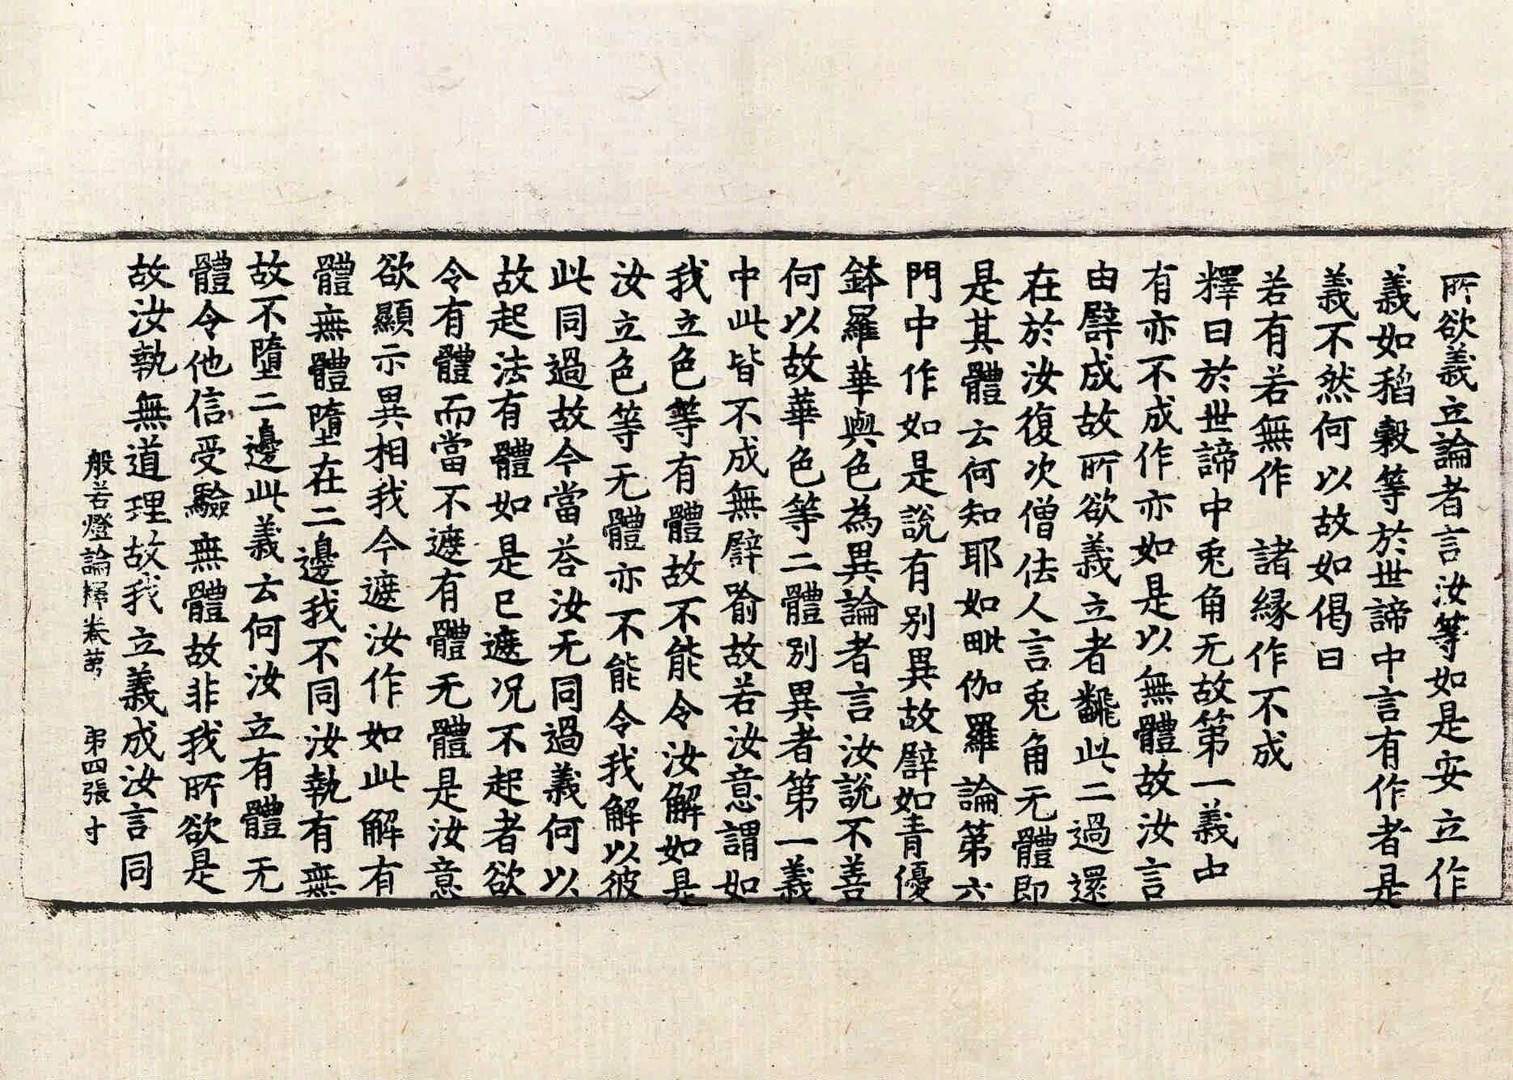 所欲義立論者言汝等如是安立作
義如稻穀等於世諦中言有作者是
義不然何以故如偈曰
若有若無作　諸緣作不成
釋曰於世諦中兎角无故第一義中
有亦不成作亦如是以無體故汝言
由譬成故所欲義立者翻此二過還
在於汝復次僧佉人言兎角无體即
是其體云何知耶如毗伽羅論第六
門中作如是說有別異故譬如青優
鉢羅華與色為異論者言汝說不善
何以故華色等二體別異者第一義
中此皆不成無譬喻故若汝意謂如
我立色等有體故不能令汝解如是
汝立色等无體亦不能令我解以彼
此同過故今當荅汝无同過義何以
故起法有體如是已遮况不起者欲
令有體而當不遮有體无體是汝意
欲顯示異相我今遮汝作如此解有
體無體墮在二邊我不同汝執有無
故不墮二邊此義云何汝立有體无
體令他信受驗無體故非我所欲是
故汝執無道理故我立義成汝言同
般若燈論釋卷苐　苐四張　寸